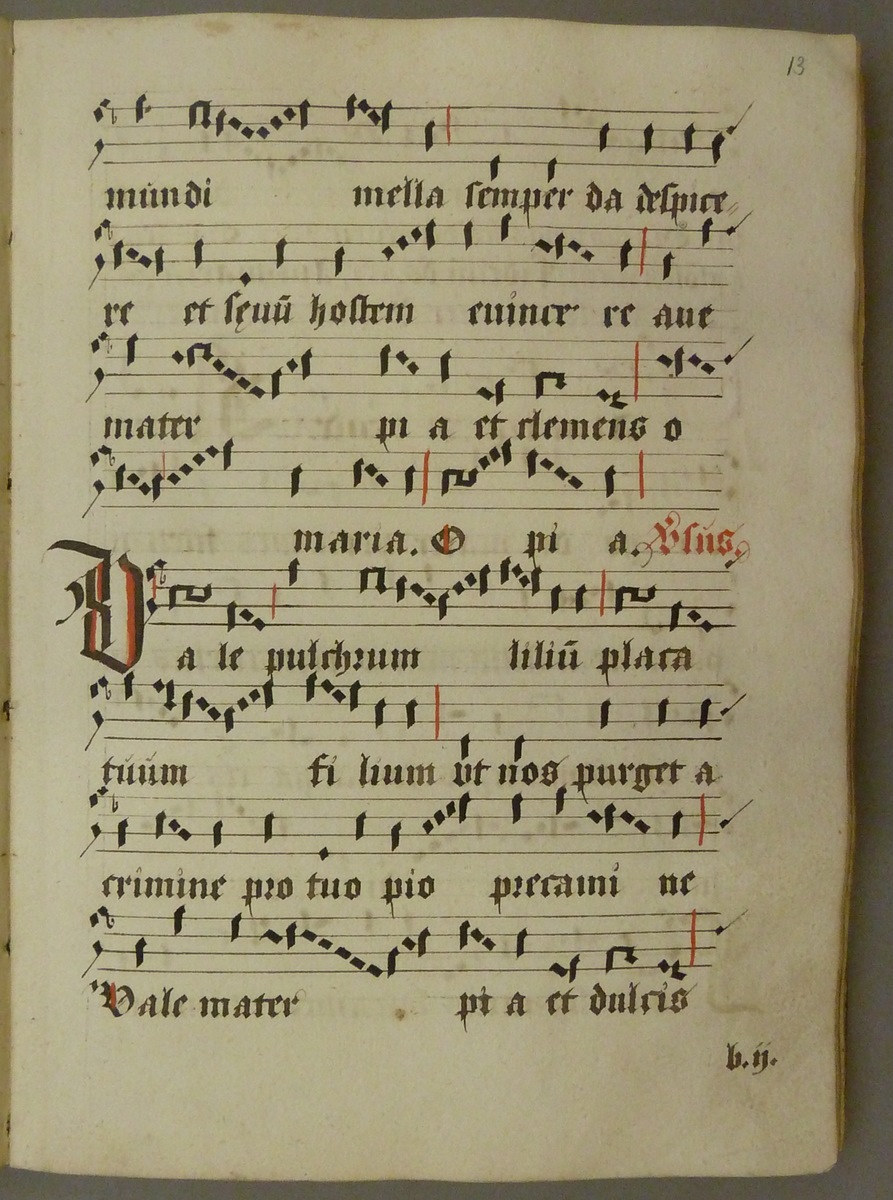 13
mundi mella semper da despice-
re et sęuū hostem euincere re aue
mater pi a et clemens o
maria. O pi a. Vsus.
Va le pulchrum liliū placa
tuum fi lium vt nos purget a
crimine pro tuo pio precami ne
Vale mater pi a et dulcis
b.ij.